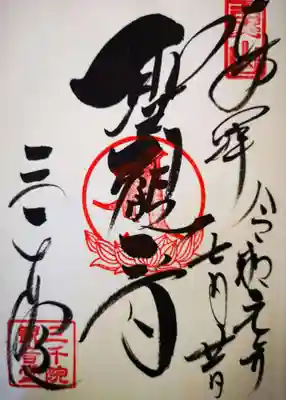 奉拝
令和元年
七月廿日
聖観音
三千院
三千院